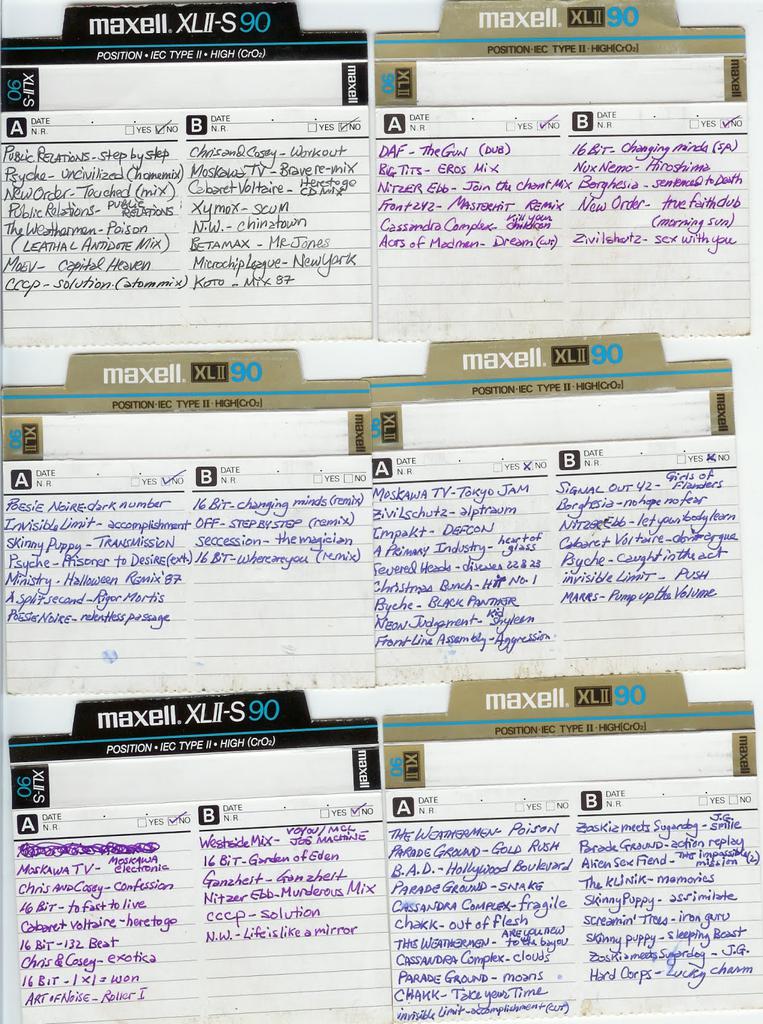 maxell. XLII-S 90
POSITION • IEC TYPE II • HIGH (CrO₂)
XLII-S 90
maxell
A DATE N.R. YES NO
Public Relations - step by step
Psyche - uncivilized (homemix)
New Order - Touched (mix)
Public Relations - PUBLIC RELATIONS
The Weatherman - Poison
(LEATHAL ANTIDOTE MIX)
Maev - Capital Heaven
CCCP - solution (atommix)
B DATE N.R. YES NO
Chris and Cosey - Workout
Moskawa TV - Brave re-mix
Cabaret Voltaire - Here to go CD MIX
Xymox - scum
N.W. - chinatown
BETAMAX - Mr. Jones
Microchip League - New York
Koto - Mix 87
maxell. XLII 90
POSITION·IEC TYPE II·HIGH[CrO₂]
XLII 90
maxell
A DATE N.R. YES NO
DAF - The Gun (DUB)
BIG TITS - EROS MIX
NITZER Ebb - Join the chant Mix
Front 242 - MASTERHIT REMIX
Cassandra Complex - Kill your children
Acts of Madmen - Dream (cut)
B DATE N.R. YES NO
16 BIT - changing minds (SR)
Nux Nemo - Hiroshima
Borghesia - sentenced to Death
New Order - true faith dub
(morning sun)
Zivilshutz - sex with you
maxell. XLII 90
POSITION·IEC TYPE II·HIGH[CrO₂]
XLII 90
maxell
A DATE N.R. YES NO
POESIE NOIRE - dark number
Invisible Limit - accomplishment
Skinny Puppy - TRANSMISSION
Psyche - Prisoner to Desire (exth)
Ministry - Halloween Remix '87
A Split second - Rigor Mortis
POESIE NOIRE - relentless passage
B DATE N.R. YES NO
16 BIT - changing minds (remix)
OFF - STEP BY STEP (remix)
seccession - the magician
16 BIT - where are you (remix)
maxell. XLII 90
POSITION·IEC TYPE II·HIGH[CrO₂]
XLII 90
maxell
A DATE N.R. YES NO
MOSKAWA TV - TOKYO JAM
Zivilschutz - alptraum
Impakt - DEFCON
A PRIMARY Industry - heart of glass
Severed Heads - diseases 22 & 23
Christmas Bunch - Hit No. 1
Psyche - BLACK PANTHER
NEON Judgement - Kid Shyleen
Front Line Assembly - Aggression
B DATE N.R. YES NO
SIGNAL OUT 42 - Girls of Flanders
Borghesia - no hope no fear
NITZER Ebb - let your body learn
Cabaret Voltaire - don't argue
Psyche - Caught in the act
invisible LIMIT - PUSH
MARRS - Pump up the Volume
maxell. XLII-S 90
POSITION • IEC TYPE II • HIGH (CrO₂)
XLII-S 90
maxell
A DATE N.R. YES NO
MOSKAWA TV - MOSKAWA electronic
Chris AND Cosey - Confession
16 BIT - to fast to live
Cabaret Voltaire - here to go
16 BIT - 132 Beat
Chris & Cosey - exotica
16 BIT - 1 x 1 = won
ART OF NOISE - Roller I
B DATE N.R. YES NO
Westside Mix - VOYOU / MCL JOS MACHINE
16 BIT - Garden of Eden
Ganzheit - Ganzheit
Nitzer Ebb - Murderous Mix
CCCP - solution
N.W. - Life is like a mirror
maxell. XLII 90
POSITION·IEC TYPE II·HIGH[CrO₂]
XLII 90
maxell
A DATE N.R. YES NO
THE WEATHERMEN - POISON
PARADE GROUND - GOLD RUSH
B.A.D. - Hollywood Boulevard
PARADE GROUND - SNAKE
CASSANDRA COMPLEX - fragile
Chakk - out of flesh
THE WEATHERMEN - ARE you NEW to the bayou
CASSANDRA Complex - clouds
PARADE GROUND - moans
CHAKK - Take your Time
invisible Limit - accomplishment (cut)
B DATE N.R. YES NO
Zoskia meets Sugardog - J.G. smile
Parade Ground - action replay
Alien Sex Fiend - this impossible mission (2)
The KLINIK - memories
Skinny Puppy - assimilate
Screamin' Trees - iron guru
Skinny puppy - sleeping Beast
Zoskia meets Sugardog - J.G.
Hard Corps - Lucky charm